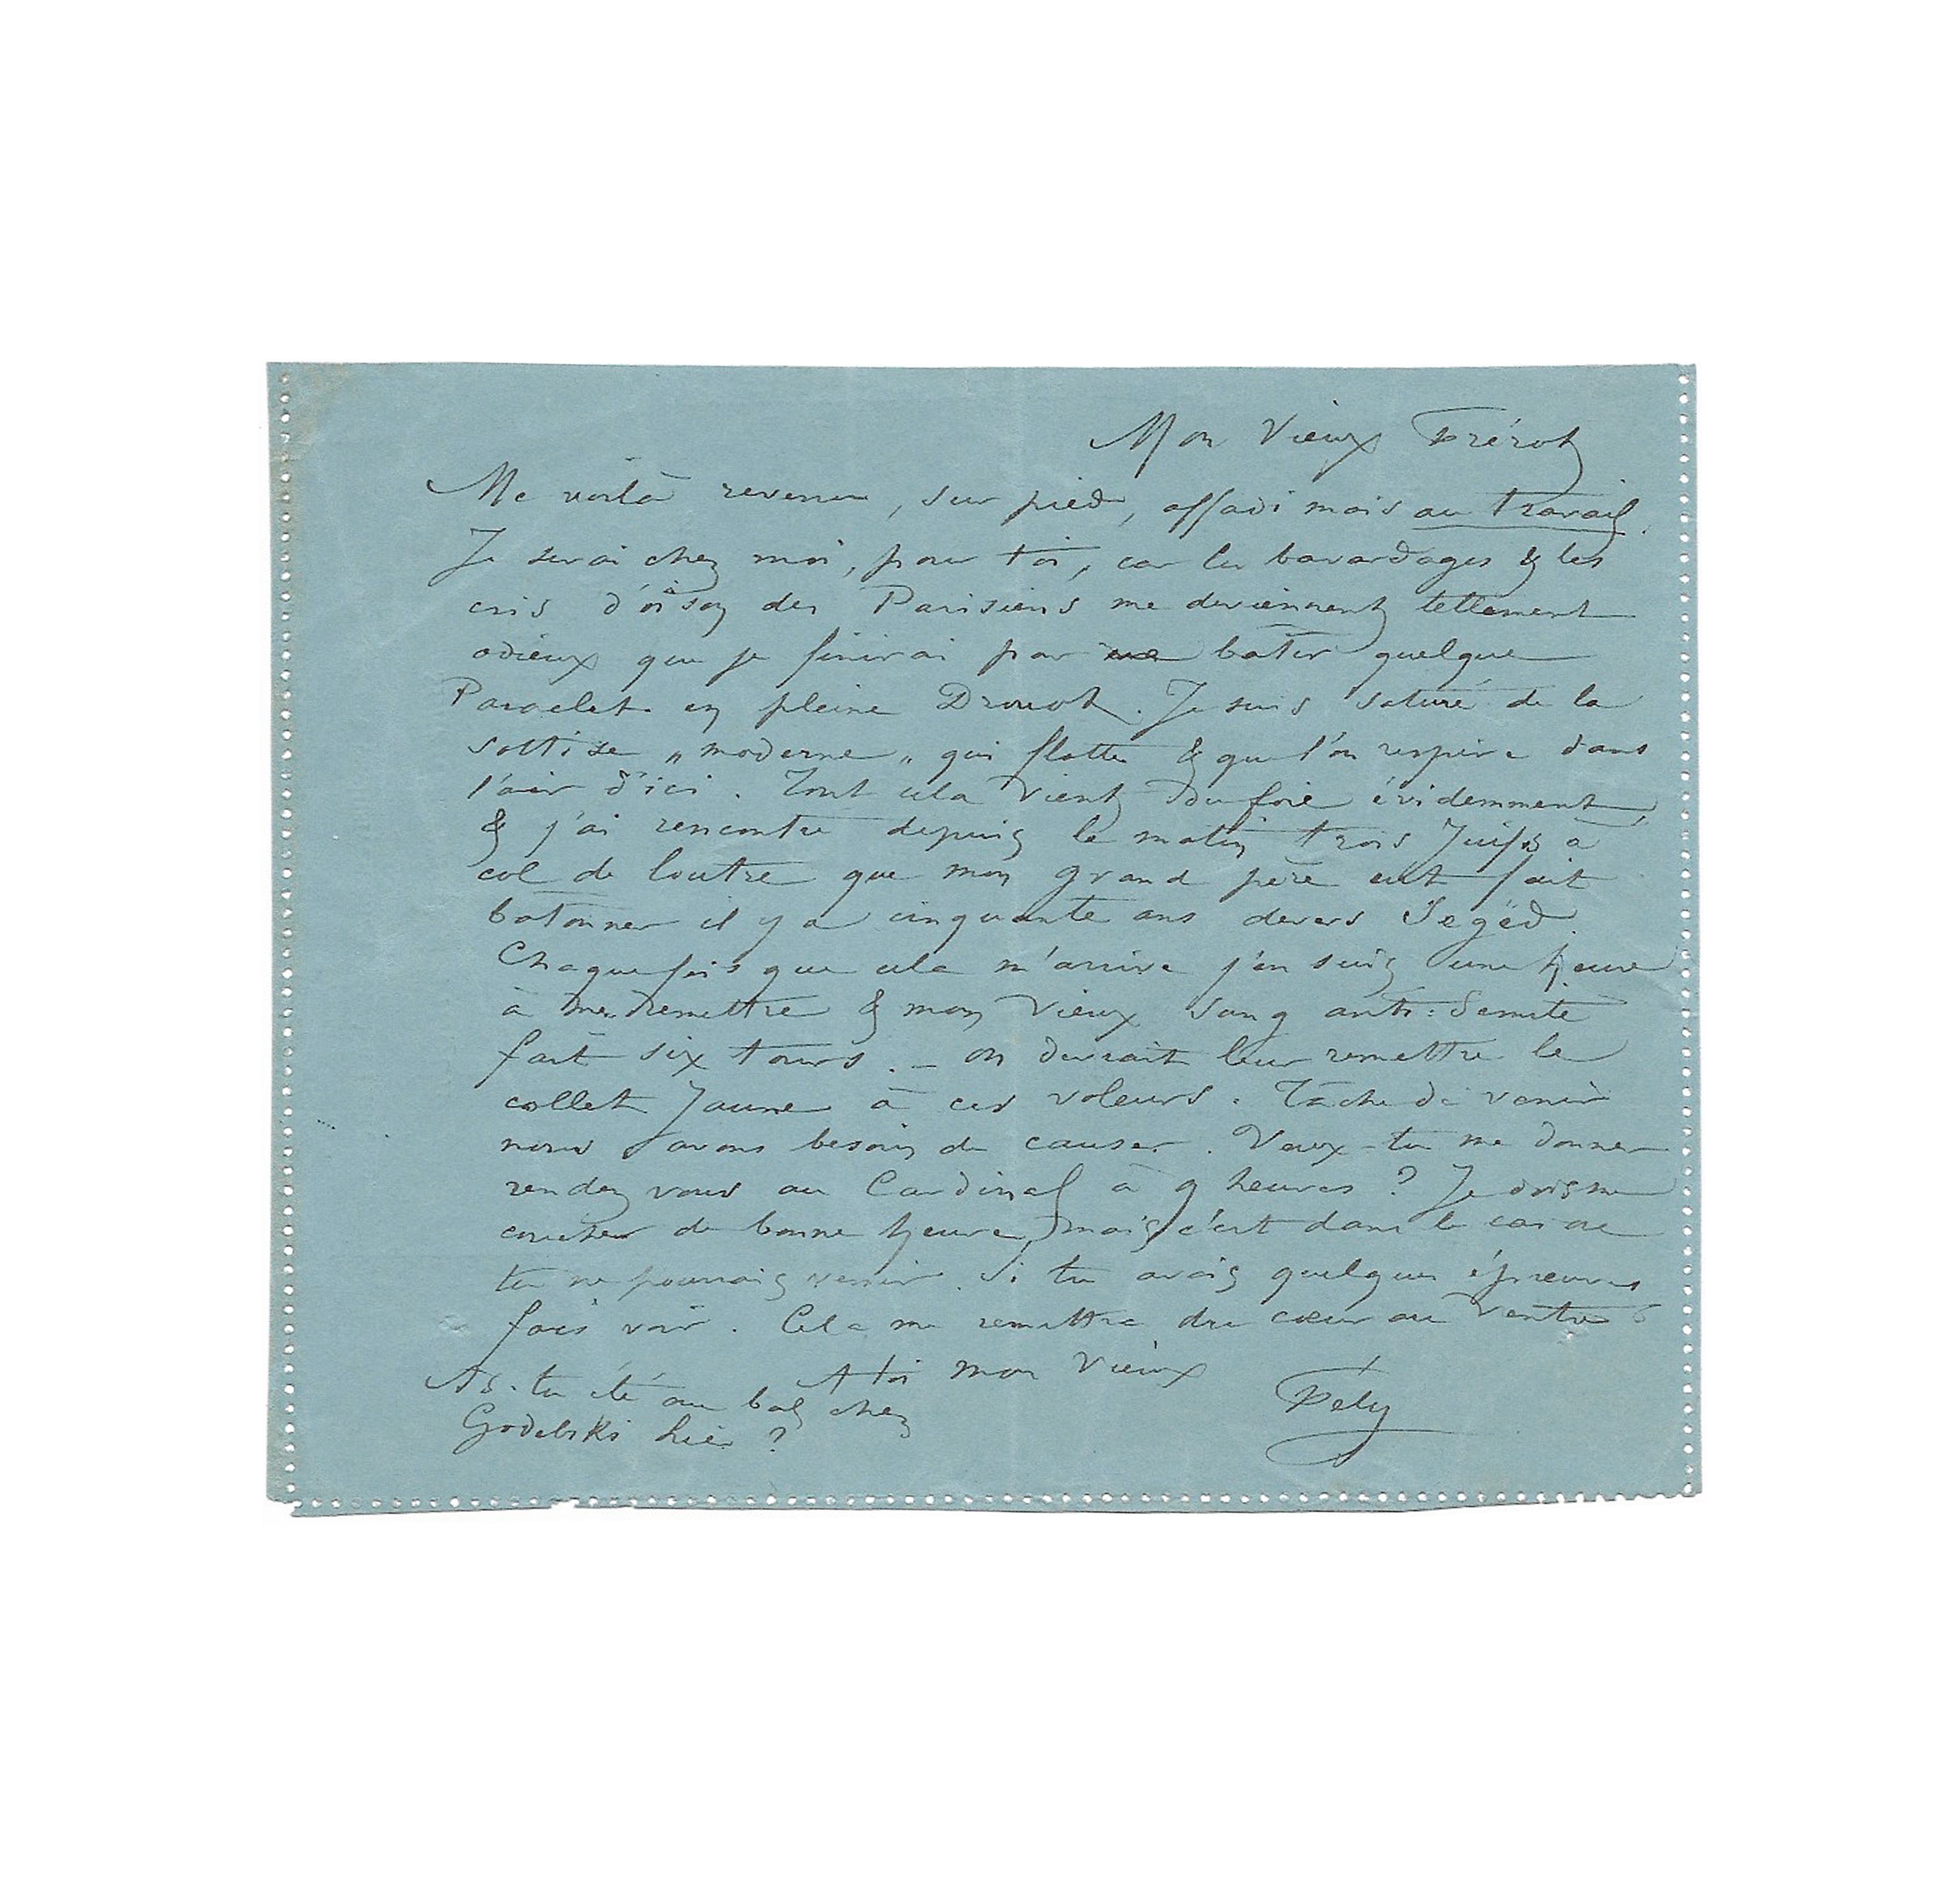 Mon Vieux Frérot
Me voilà revenu, sur pied, affadi mais au travail.
Je serai chez moi, pour toi, car les bavardages & les
cris d'oison des Parisiens me deviennent tellement
odieux que je finirai par batir quelque
Paraclet en pleine Drouot. Je suis saturé de la
sottise „moderne„ qui flotte & que l'on respire dans
l'air d'ici. Tout cela vient du foie évidemment,
& j'ai rencontré depuis le matin trois Juifs à
col de loutre que mon grand père eut fait
batonner il y a cinquante ans devers Segëd.
Chaque fois que cela m'arrive j'en suis une heure
à me remettre & mon vieux sang anti-Semite
fait six tours. – on devrait leur remettre le
collet Jaune à ces voleurs. Tâche de venir
nous avons besoin de causer. Veux-tu me donner
rendez vous au Cardinal à 9 heures ? Je dois me
coucher de bonne heure, mais c'est dans le cas où
tu ne pourrais venir. Si tu avais quelques épreuves
fais voir. Cela me remettra du cœur au ventre
A toi mon vieux
Fély
As-tu été au bal chez
Godebski hier ?